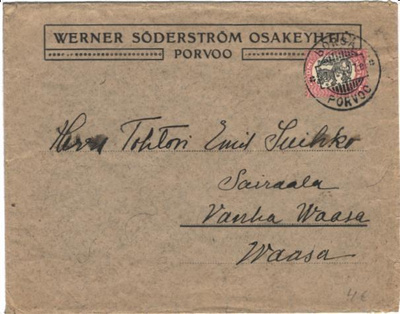 WERNER SÖDERSTRÖM OSAKEYHTIÖ
PORVOO
BORGÅ
PORVOO
Herra Tohtori Emil Suihko
Sairaala
Vanha Waasa
Waasa
4€